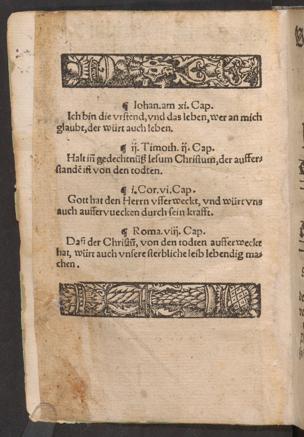 ¶ Iohan. am xi. Cap.
Ich bin die vrstend, vnd das leben, wer an mich
glaubt, der würt auch leben.
¶ ij. Timoth. ij. Cap.
Halt iñ gedechtnüß Iesum Christum, der auffer-
standẽ ist von den todten.
¶ i. Cor. vi. Cap.
Gott hat den Herrn vfferweckt, vnd würt vns
auch auffervuecken durch sein krafft.
¶ Roma. viij. Cap.
Dañ der Christũ, von den todten aufferweckt
hat, würt auch vnsere sterbliche leib lebendig ma-
chen.